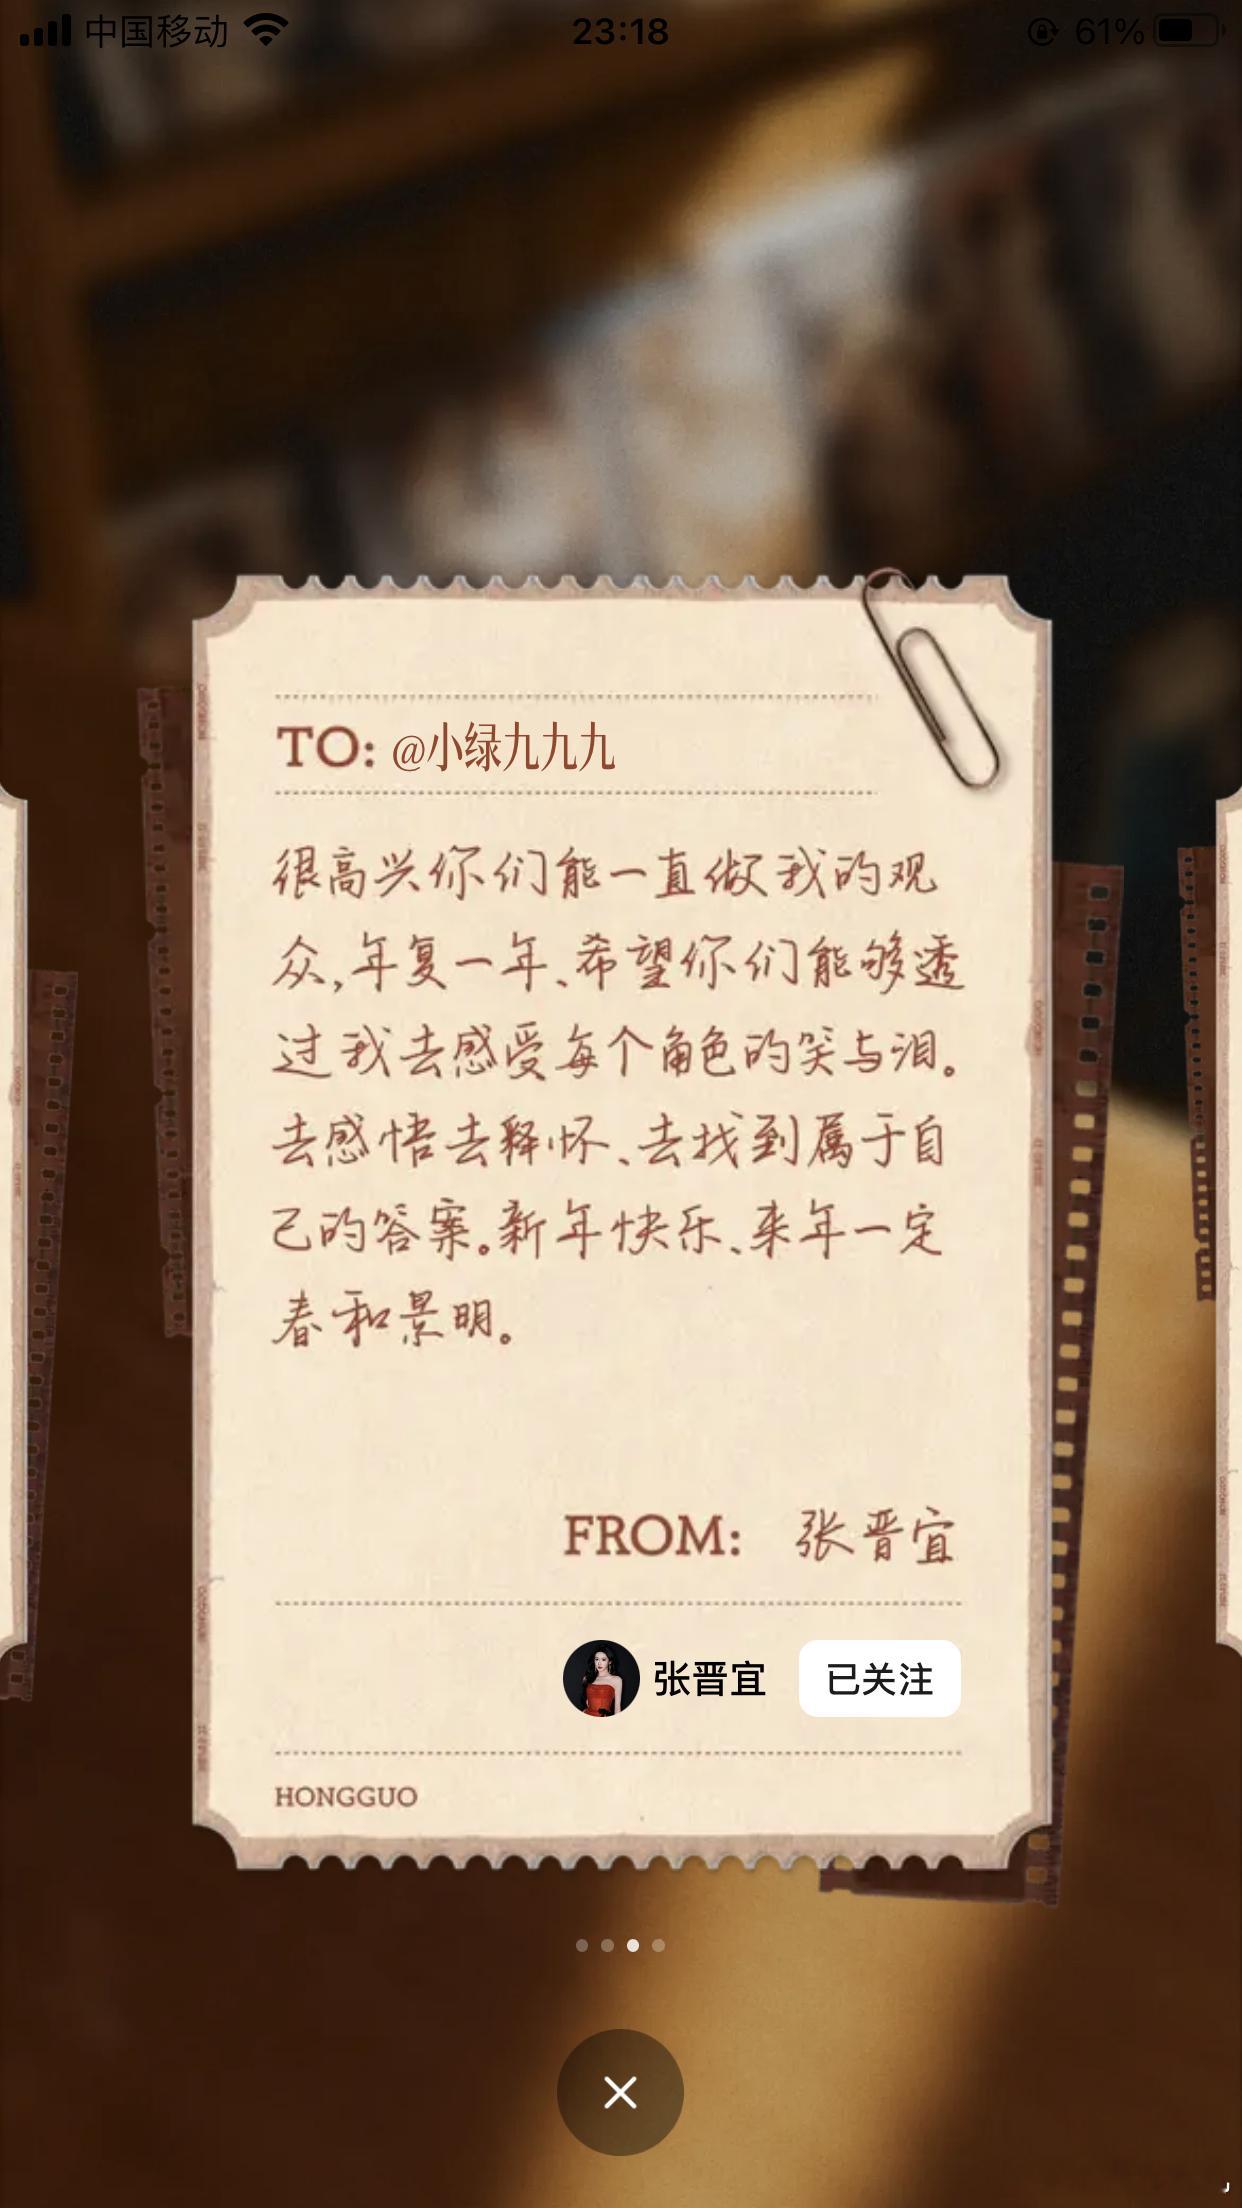 中国移动 23:18 61%
TO: @小绿九九九
很高兴你们能一直做我的观
众,年复一年、希望你们能够透
过我去感受每个角色的笑与泪。
去感悟去释怀、去找到属于自
己的答案。新年快乐、来年一定
春和景明。
FROM: 张晋宜
张晋宜 已关注
HONGGUO